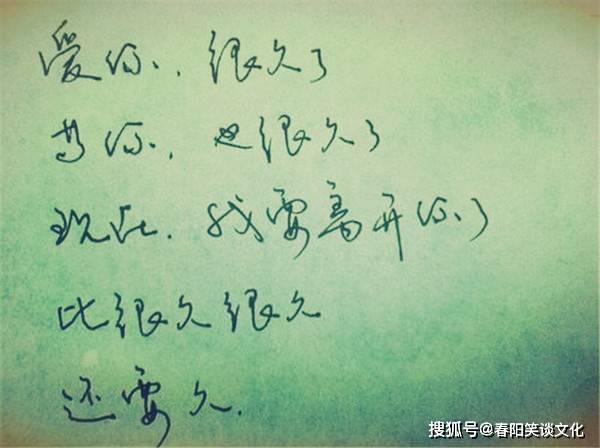 爱你，很久了
等你，也很久了
现在，我要离开你了
比很久很久
还要久.
搜狐号@春阳笑谈文化